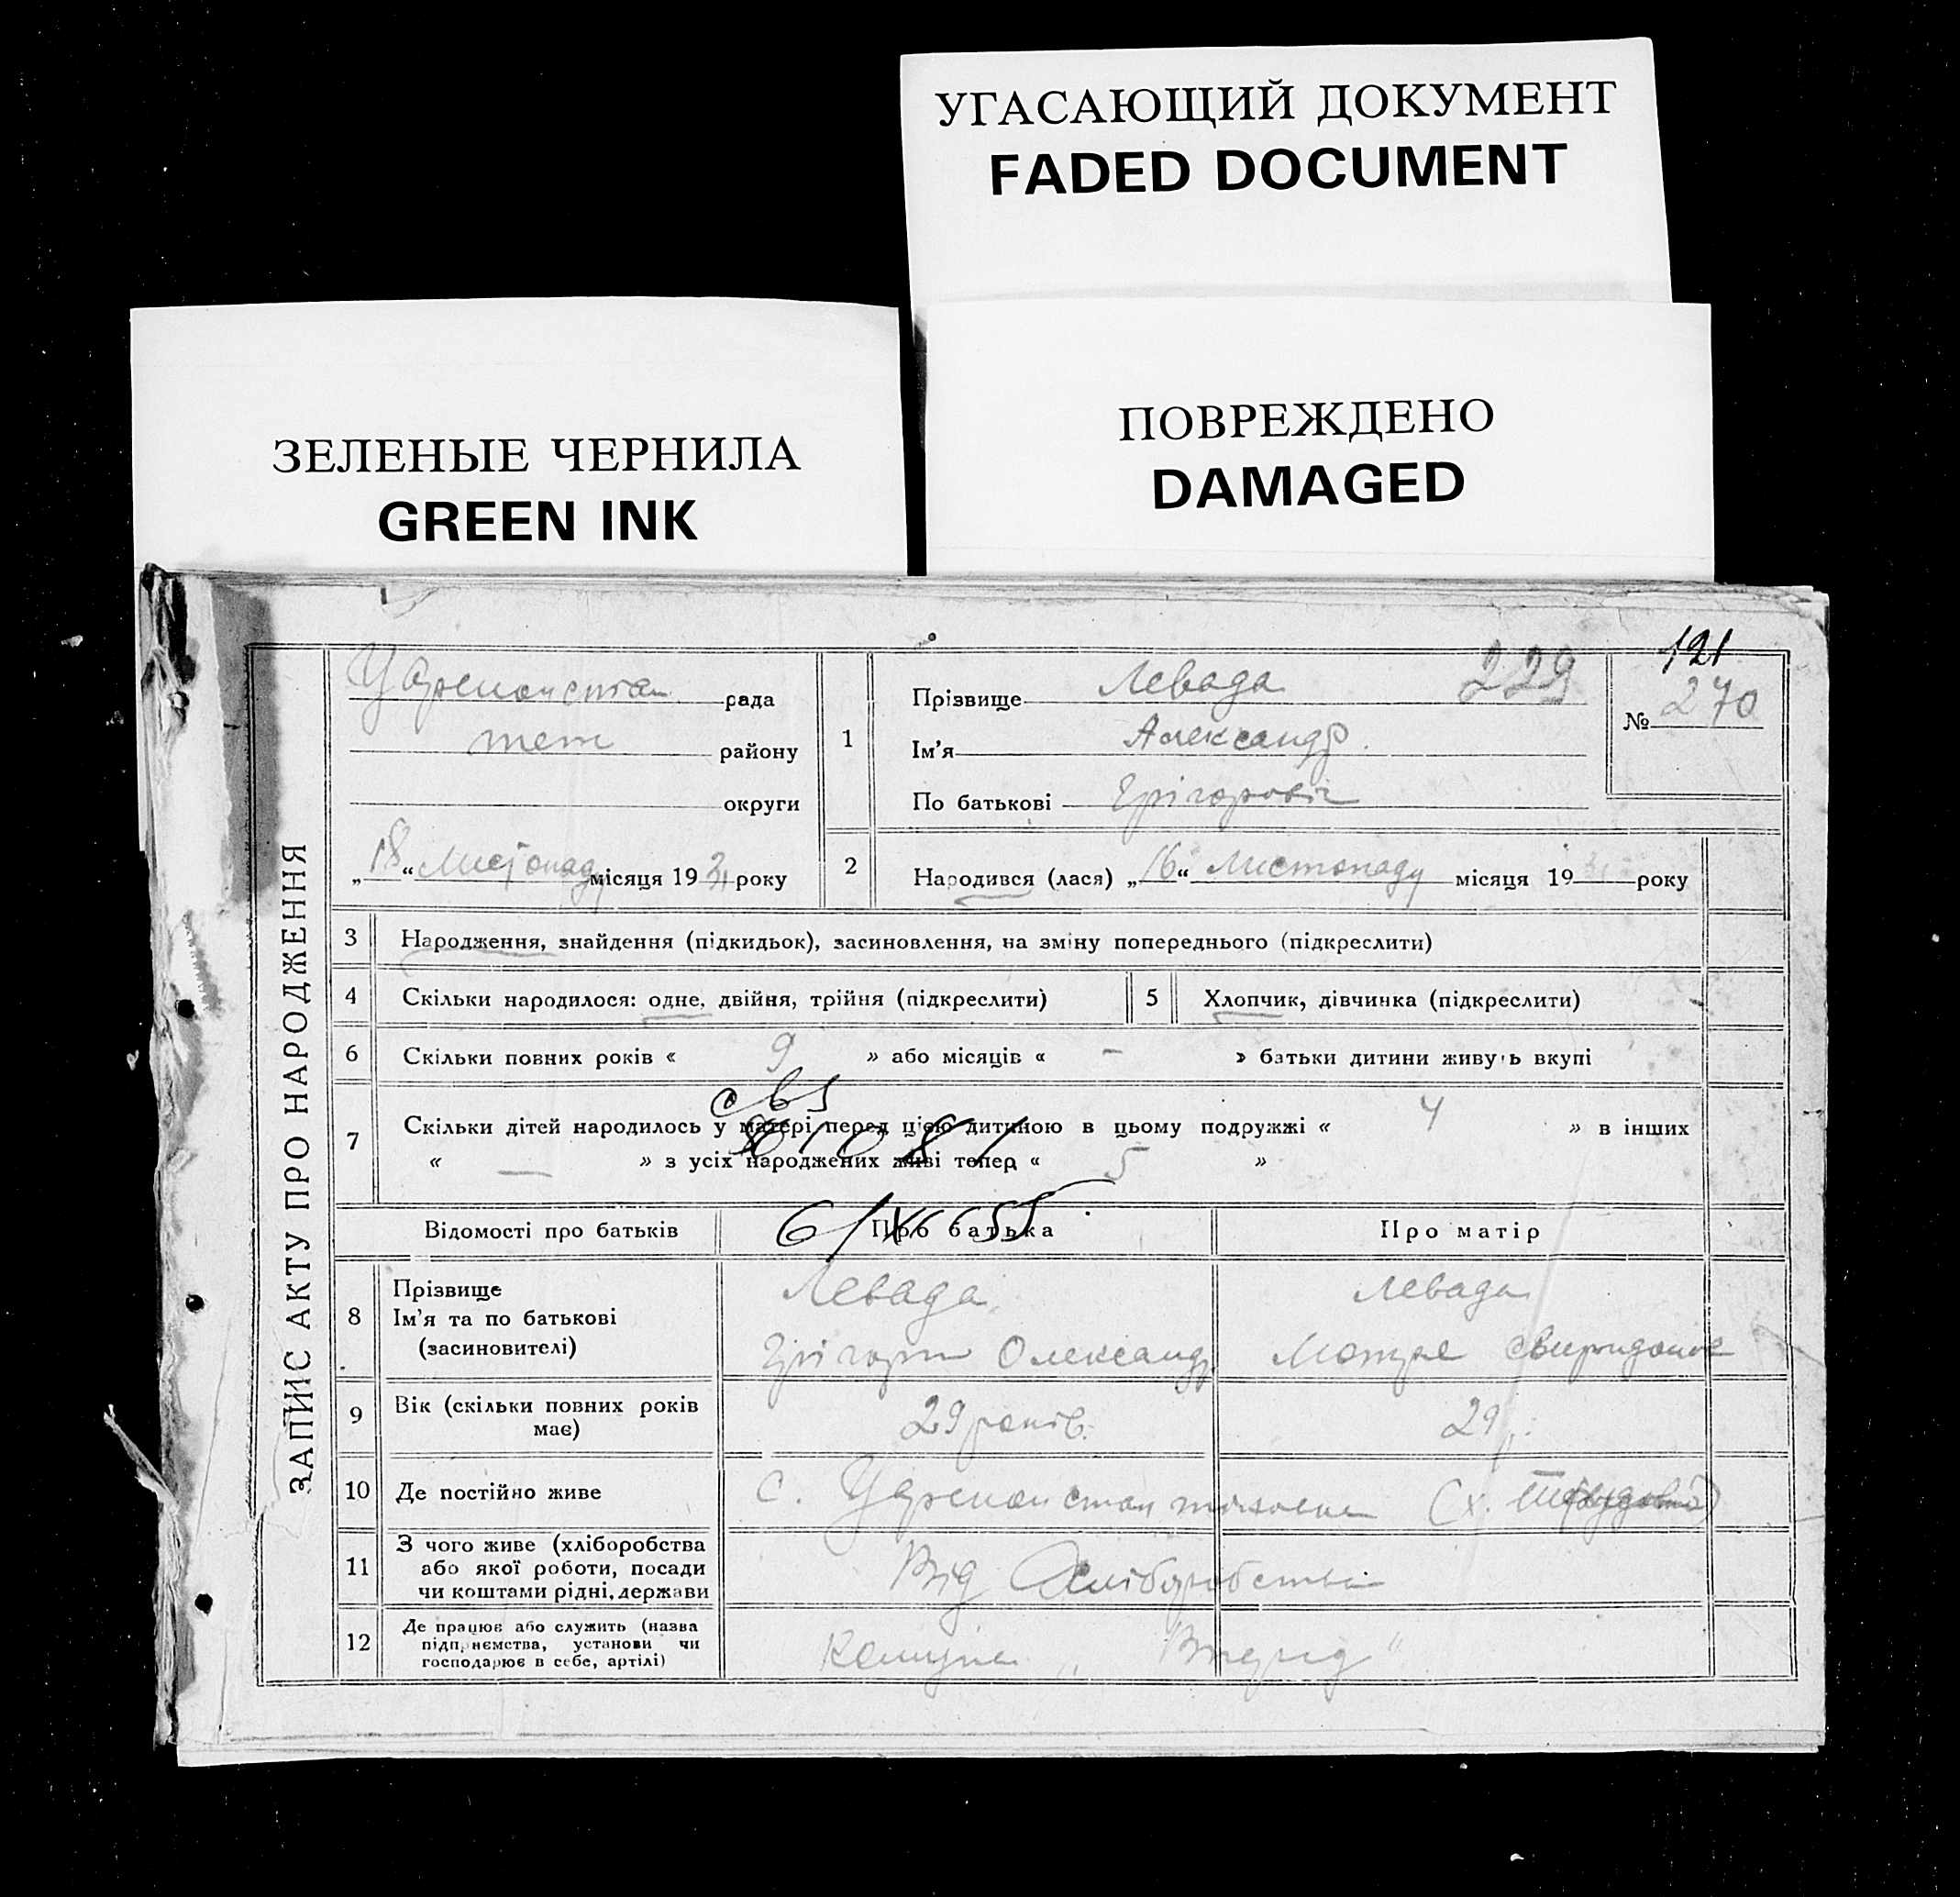 УГАСАЮЩИЙ ДОКУМЕНТ
FADED DOCUMENT
ЗЕЛЕНЫЕ ЧЕРНИЛА
GREEN INK
ПОВРЕЖДЕНО
DAMAGED
ЗАПИС АКТУ ПРО НАРОДЖЕННЯ
121
229
№ 270
рада
району
округи
„18“ Листопаду місяця 1931 року
1 Прізвище Левада
Ім'я Александр
По батькові Грігоровіч
2 Народився (лася) „16“ Листопаду місяця 1931 року
3 Народження, знайдення (підкидьок), засиновлення, на зміну попереднього (підкреслити)
4 Скільки народилося: одне, двійня, трійня (підкреслити)
5 Хлопчик, дівчинка (підкреслити)
6 Скільки повних років « 9 » або місяців « - » батьки дитини живуть вкупі
7 Скільки дітей народилось у матері перед цією дитиною в цьому подружжі « 4 » в інших
« — » з усіх народжених живі тепер « 5 »
Відомості про батьків
Про батька
Про матір
8 Прізвище
Ім'я та по батькові
(засиновителі)
Левада
Олександр
Левада
9 Вік (скільки повних років
має)
29 років.
29 р.
10 Де постійно живе
с.
(х.
11 З чого живе (хліборобства
або якої роботи, посади
чи коштами рідні, держави
Від Хліборобства
12 Де працює або служить (назва
підприємства, установи чи
господарює в себе, артілі)